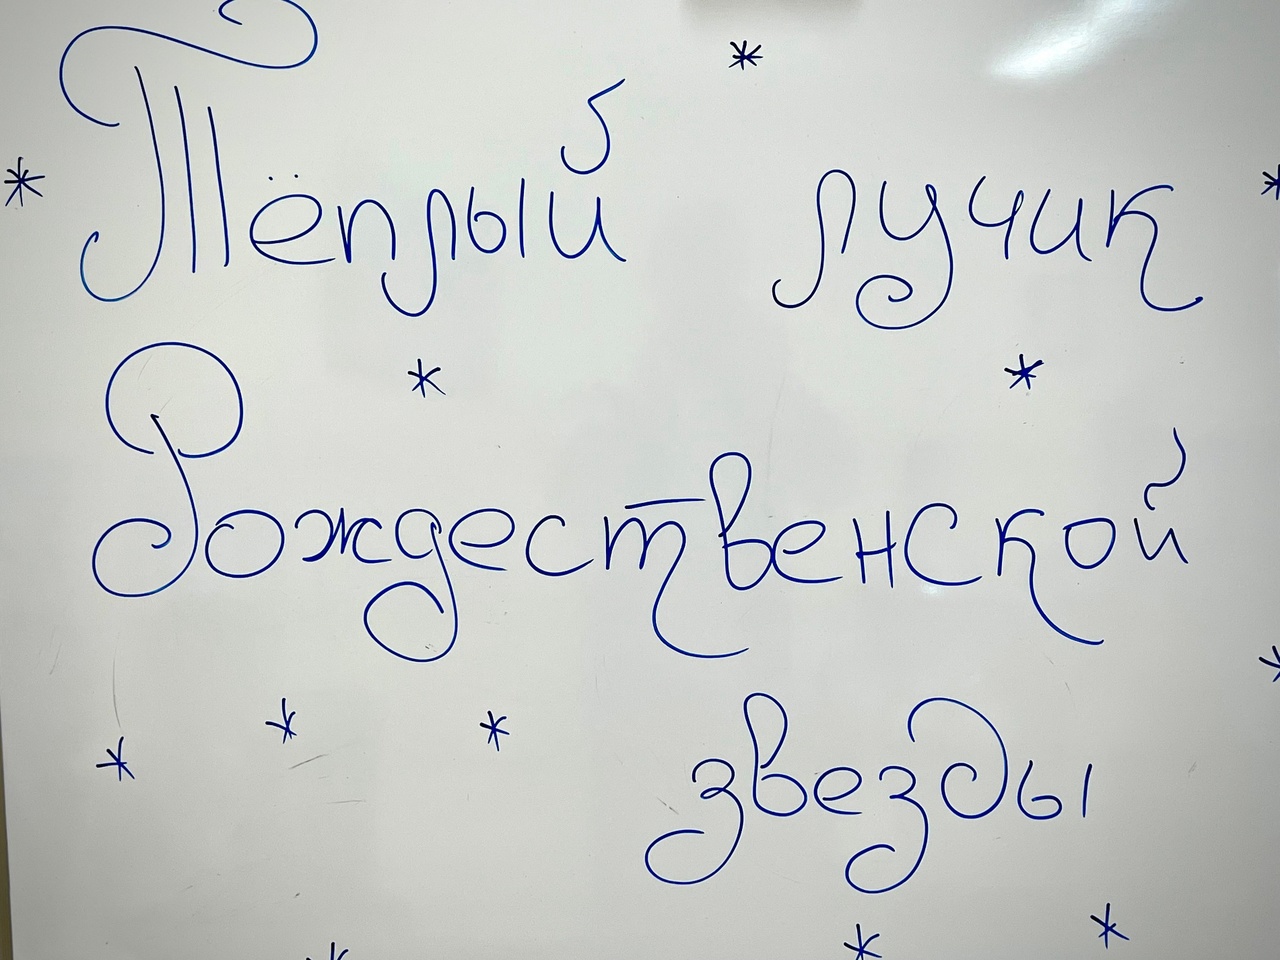 Тёплый лучик
Рождественской
звезды